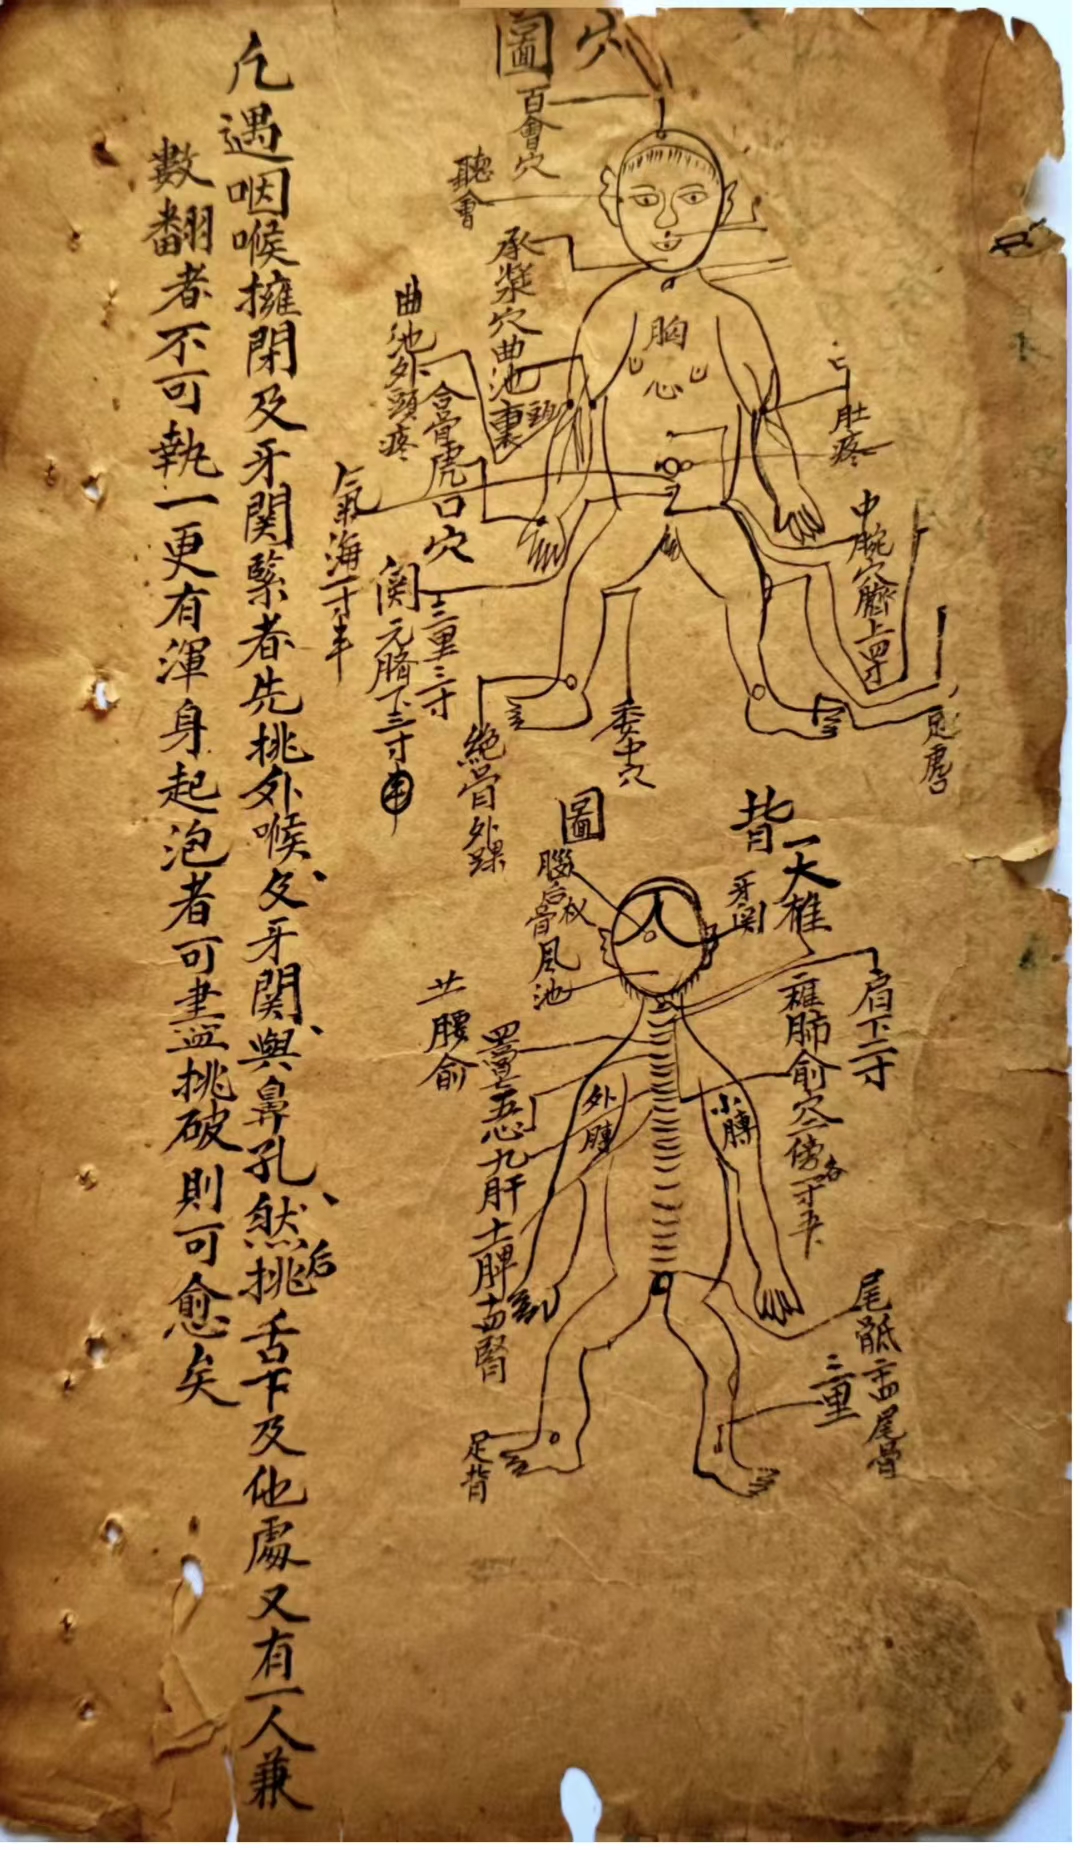 穴圖
百會穴
聽會
承漿穴
曲池裏
曲池外頭疼
合骨虎口穴
氣海一寸半
三里三寸
関元臍下三寸
絶骨外踝
委中穴
胸
心
心
肚疼
中腕穴臍上四寸
背圖
一大椎
牙関
腦后枕骨
風池
肩下二寸
三椎肺俞穴二傍各一寸五
外膊
小膊
五心
九肝
十一脾
十四腎
廿腰俞
尾骶
尾骨
三里
足背
凢遇咽喉擁閉及牙関緊者先挑外喉及牙関與鼻孔然后挑舌下及他處又有一人兼
數翻者不可執一更有渾身起泡者可盡挑破則可愈矣